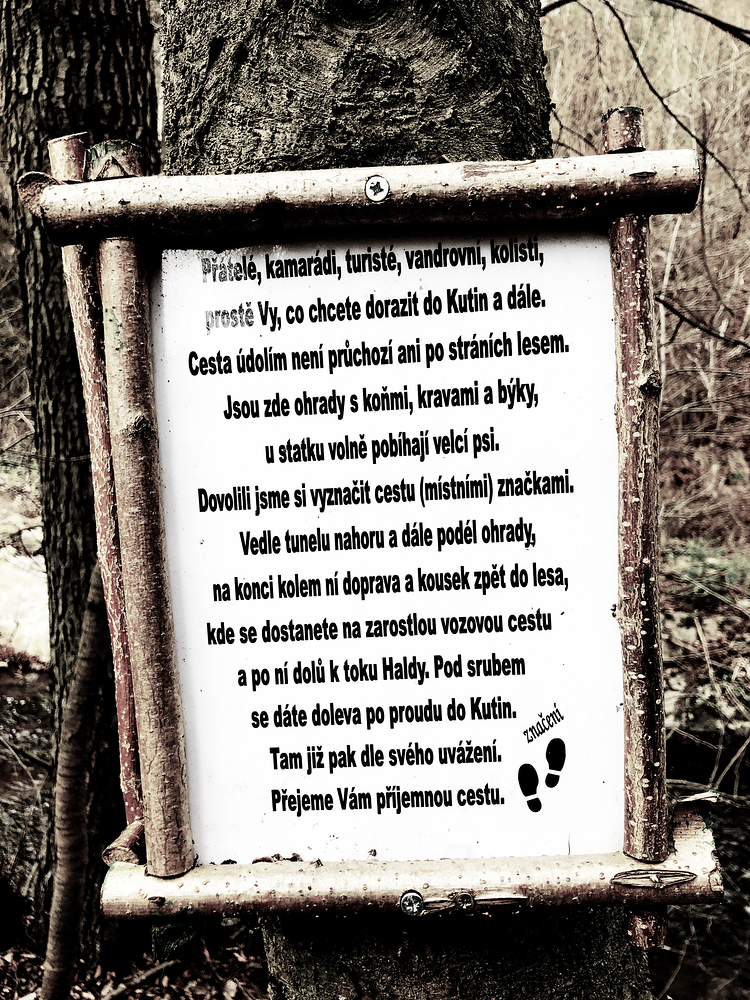 Přátelé, kamarádi, turisté, vandrovní, kolisti,
prostě Vy, co chcete dorazit do Kutin a dále.
Cesta údolím není průchozí ani po stráních lesem.
Jsou zde ohrady s koňmi, kravami a býky,
u statku volně pobíhají velcí psi.
Dovolili jsme si vyznačit cestu (místními) značkami.
Vedle tunelu nahoru a dále podél ohrady,
na konci kolem ní doprava a kousek zpět do lesa,
kde se dostanete na zarostlou vozovou cestu
a po ní dolů k toku Haldy. Pod srubem
se dáte doleva po proudu do Kutin.
značení
Tam již pak dle svého uvážení.
Přejeme Vám příjemnou cestu.